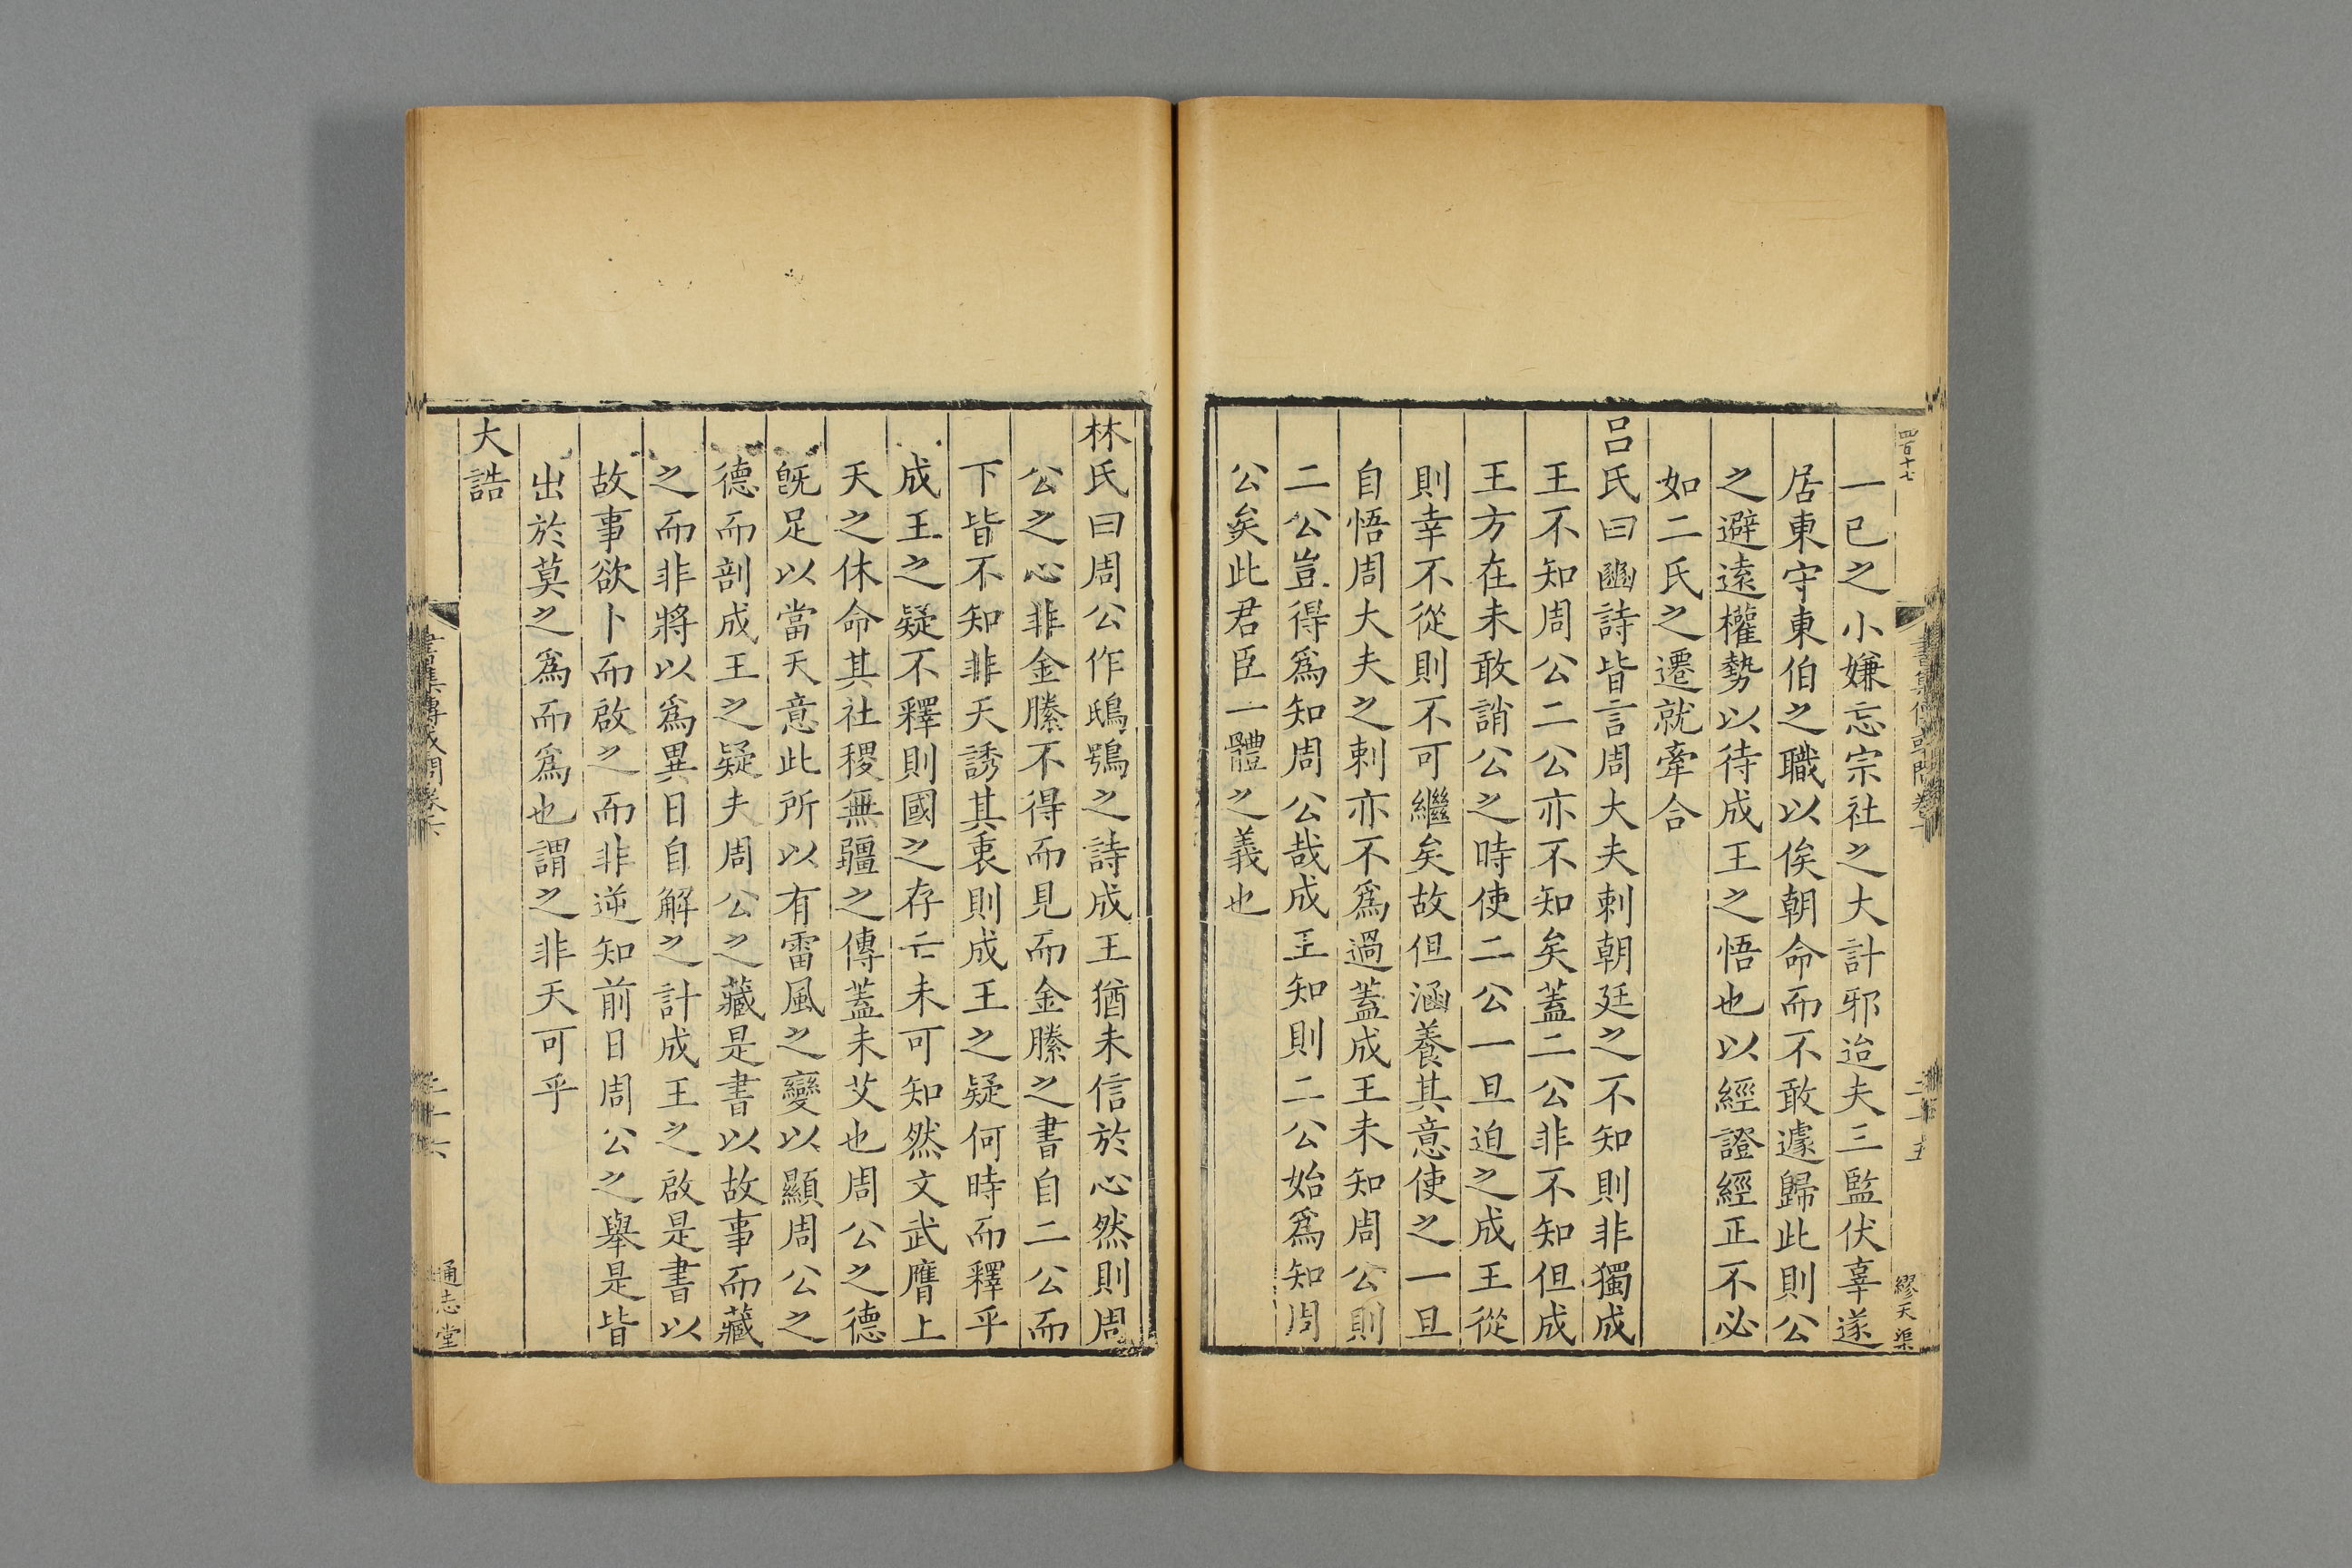 四百十七
繆天渠
一已之小嫌忘宗社之大計邪迨夫三監伏辜遂
居東守東伯之職以俟朝命而不敢遽歸此則公
之避遠權勢以待成王之悟也以經證經正不必
如二氏之遷就牽合
呂氏曰豳詩皆言周大夫刺朝廷之不知則非獨成
王不知周公二公亦不知矣蓋二公非不知但成
王方在未敢誚公之時使二公一旦迫之成王從
則幸不從則不可繼矣故但涵養其意使之一旦
自悟周大夫之刺亦不為過蓋成王未知周公則
二公豈得為知周公哉成王知則二公始為知周
公矣此君臣一體之義也
林氏曰周公作鴟鴞之詩成王猶未信於心然則周
公之心非金縢不得而見而金縢之書自二公而
下皆不知非天誘其衷則成王之疑何時而釋乎
成王之疑不釋則國之存亡未可知然文武膺上
天之休命其社稷無疆之傳蓋未艾也周公之德
旣足以當天意此所以有雷風之變以顯周公之
德而剖成王之疑夫周公之藏是書以故事而藏
之而非將以爲異日自解之計成王之啟是書以
故事欲卜而啟之而非逆知前日周公之舉是皆
出於莫之爲而爲也謂之非天可乎
大誥
通志堂